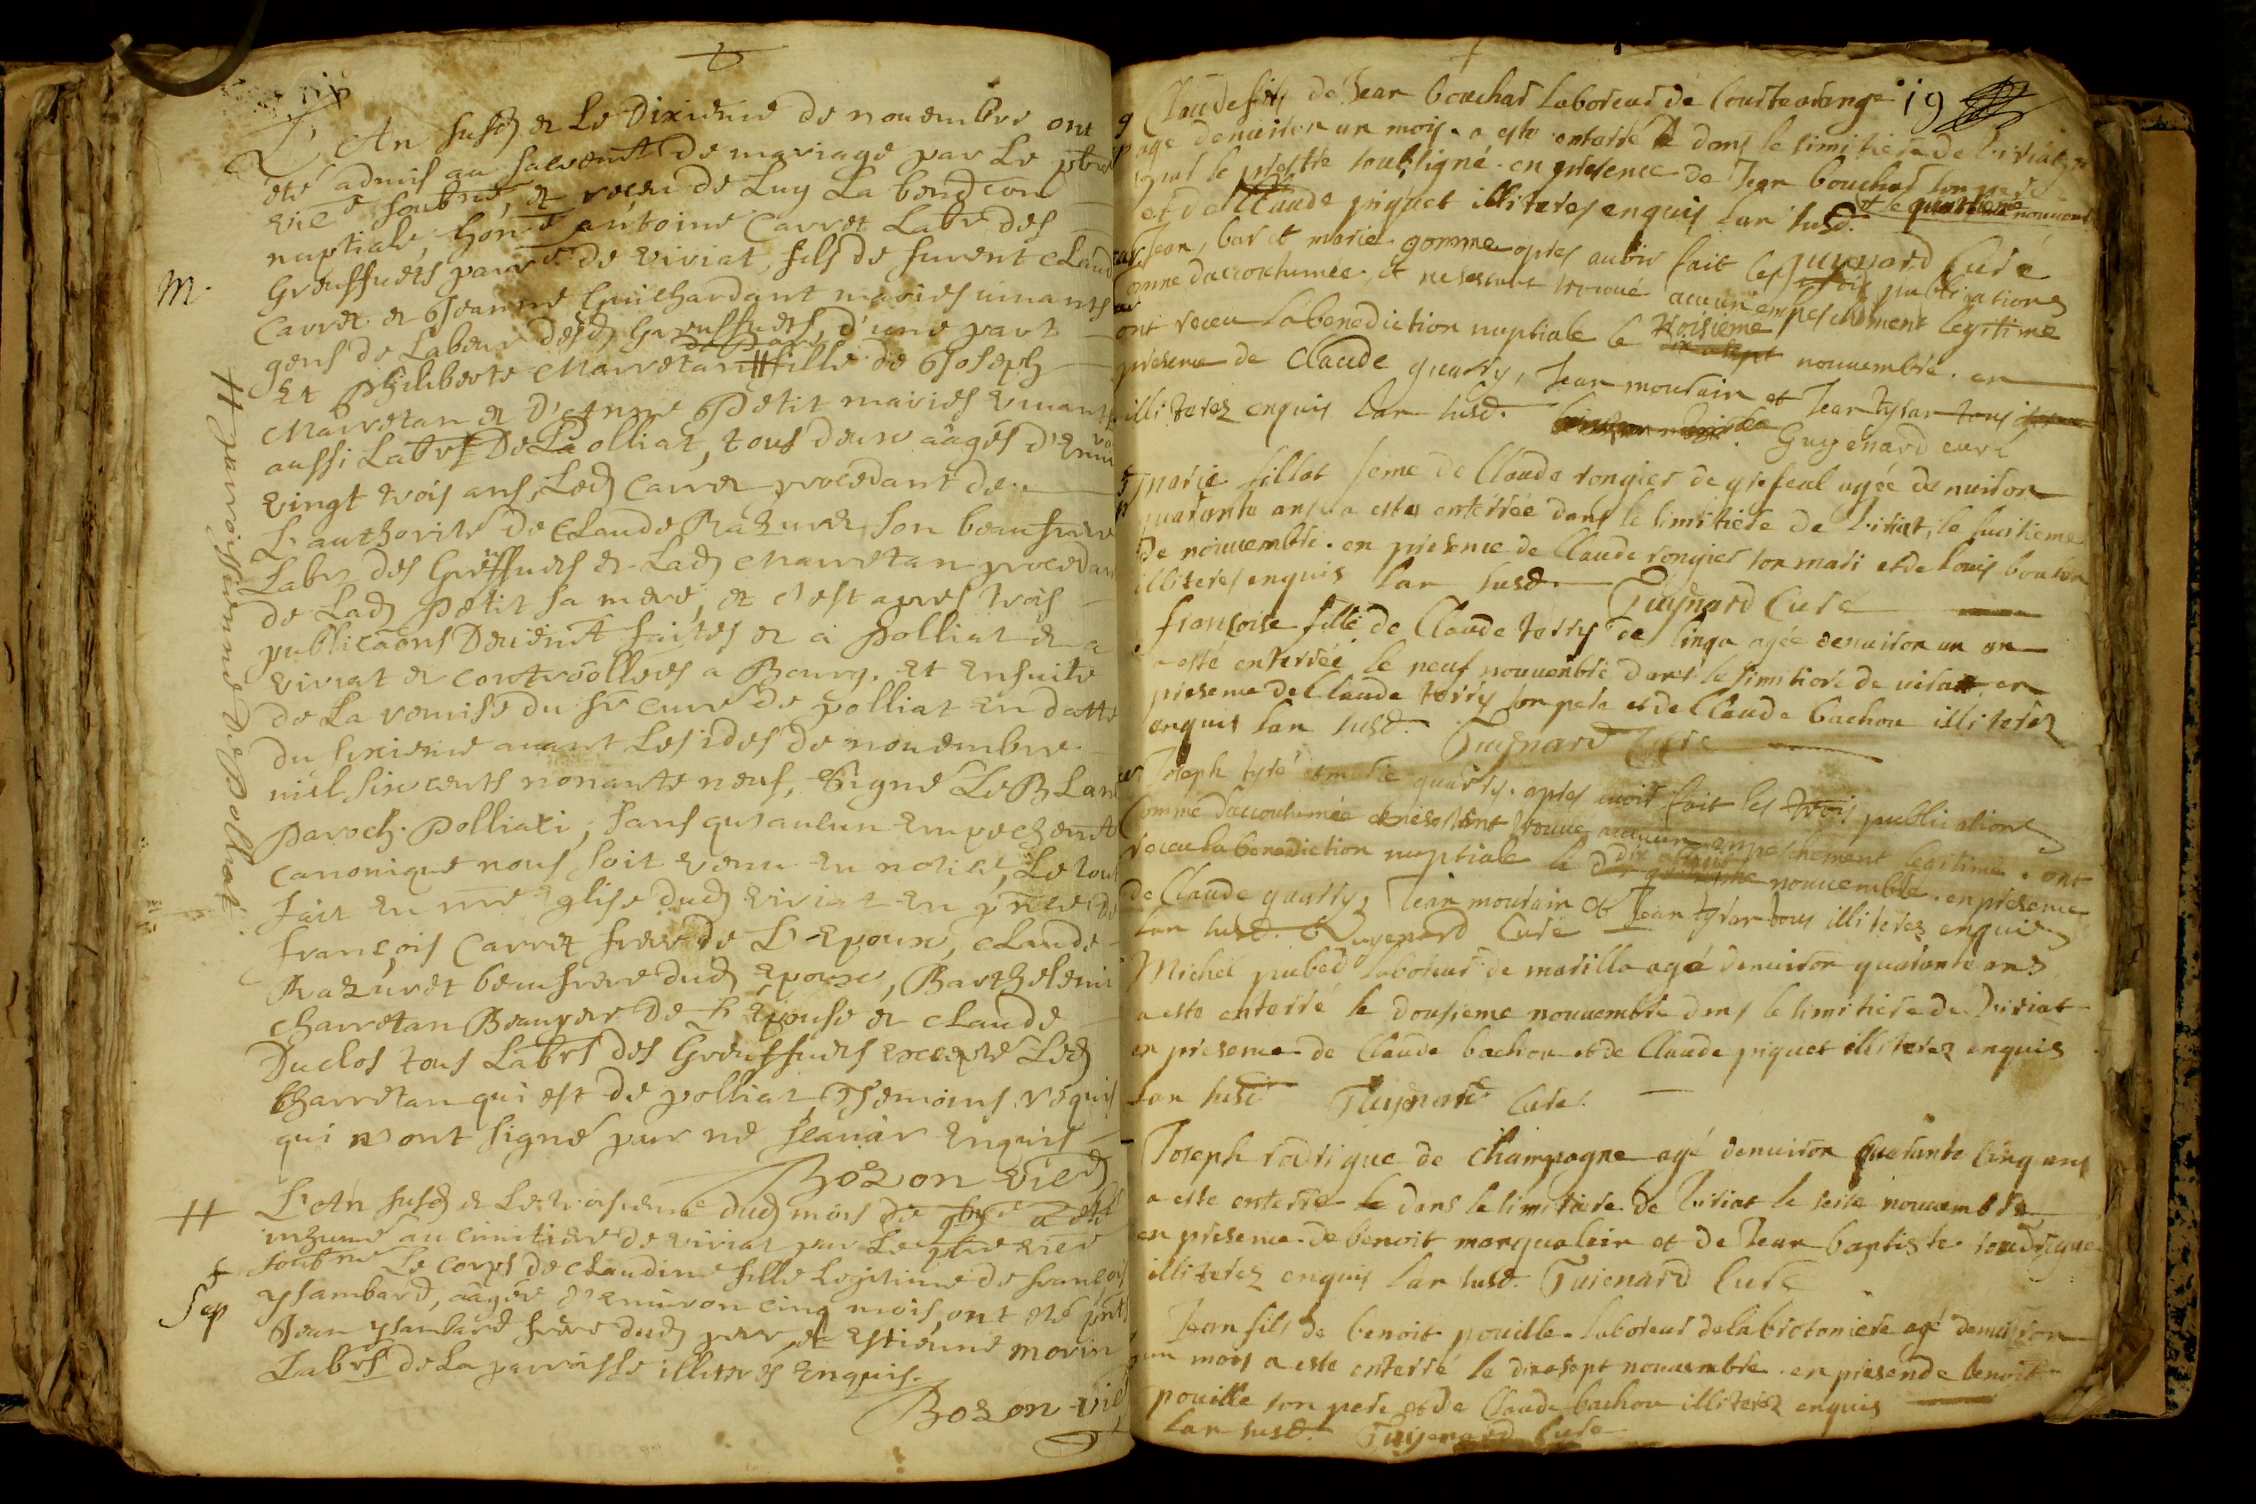 L'An susd et Le Dixieme de novembre ont
été admis au sacremt de mariage par Le ptre
vicre soubné, et receu de Luy La benedon
nuptiale, honte antoine Carret Labr des
Greuffiets parre de viriat, fils de furent Claude
M. Carret et Jeanne Guichardant mariés vivants
gens de Labeur desd Greuffiets, d'une part
Et Philiberte Marretan # fille de Joseph
Marretan et D'Anne Petit mariés vivants
aussi Labrs De Polliat, tous deux aagés d'environ
vingt trois ans, Led Carret procedant de
L'authorité de Claude Razuret son beaufrere
Labr des Greffiets et Lad Marretan procedant
de Lad Petit sa mere, et c'est apres trois
publicaons Deuemt faites et a Polliat et a
viriat et controollées a Bourg. et ensuite
de La remise du sr curé de polliat en datte
du sixieme avant Les ides de novembre
mil six cents nonante neuf, signé LeBlanc
Paroch. Polliati, sans qu'aucun empechemt
canonique nous soit venu en notice, Le tout
fait en me eglise dud viriat en pnce de
François Carret frere de L'Epoux, Claude
Razuret beaufrere dud Epoux, Barthelemi
Charretan Beaupere De L'Epouse et Claude
Duclos tous Labrs des Greuffiets excepté Led
Charretan qui est de polliat, Temoins requis
qui n'ont signé pour ne sçavoir Enquis
Bozon vicre
# parroissienne de Polliat.
# L'An susd et Le troisieme dud mois de 9bre a été
inhumé au cimitiere de viriat par Le ptre vicre
soubné Le corps de Claudine fille Legitime de François
Sep ysambard, aagée d'environ cinq mois, ont été pnts
Jean ysambard frere dud pere, et Estienne morin
Labrs de La parroisse illitrés Enquis.
Bozon vicre
19
Claude fils de Jean bouchard laboreur de Courtearange
agé denuiron un mois a esté enterré dans le simitiere de viriat
par le prestre soubsigné en presence de Jean bouchard son pere
et de Claude piquet illiteres enquis lan susd. et le quatrieme nouuembre
Guyenard Curé
Jean, bar et marie gomme apres auoir fait les trois publications
comme daccoutumée, et ne sestant trouué aucun empeschement legitime
ont receu la benediction nuptiale le troisieme nouuembre. en
presence de Claude quarry, Jean mourain et Jean tysar tous
illiterez enquis lan susd. Guyenard curé
marie fillot feme de Claude rongier de greseal agée denuiron
quarante ans a estée enterrée dans le simitiere de viriat, le huitieme
de nouuembre. en presence de Claude rongier son mari et de Louis bouton
illiteres enquis lan susd. Guyenard Curé
françoise fille de Claude terry de linga agée denuiron un an
a esté enterrée le neuf nouuenbre dans le simitiere de uiriat en
presence de Claude terry son pere et de Claude bachou illiterez
enquis lan susd. Guyenard Curé
Joseph tysé et marie quarry. apres auoir fait les trois publications
Comme daccoutumée et ne sestant trouué aucun empeschement legitime. ont
receu la benediction nuptiale le dix nouuembre. en presence
de Claude quarry, Jean mourain et Jean tysar tous illiterez enquis
lan susd. Guyenard Curé
Michel pubed laboreur de marillia agé denuiron quarante ans
a esté enterré le dousieme nouuembre dans le simitiere de Viriat
en presence de Claude bachou et de Claude piquet illiterez enquis
lan susd Guyenard Curé.
Joseph rodrigue de Champagne agé denuiron quarante cinq ans
a esté enterré dans le simitiere de Viriat le seise nouuembre
en presence de benoit marqualoir et de Jean baptiste roudrigue
illiterez enquis lan susd. Guienard Curé
Jean fils de benoit pouille laboreur de labrotoniere agé denuiron
un mois a esté enterré le dixesept nouuembre. en presence de benoit
pouille son pere et de Claude bachou illiterez enquis
lan susd. Guyenard Curé